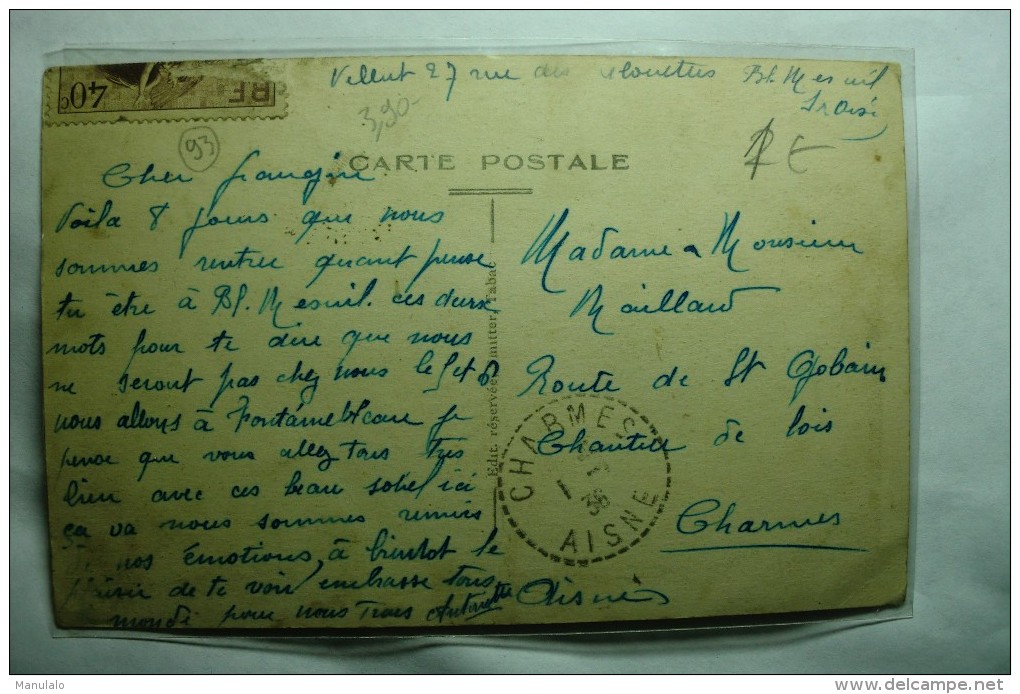 Villent 27 rue des Alouettes Bl. Mesnil
Sr Oise
40c
RF
3,90-
93
CARTE POSTALE
Cher frangine
Voila 8 jours que nous
sommes rentrer quant pense
tu être à Bl. Mesnil. ces deux
mots pour te dire que nous
ne seront pas chez nous le 7 et 8
nous allons à Fontainebleau je
pense que vous allez tous tres
bien avec ces beau soleil ici
ça va nous sommes remis
nos émotions, à bientot le
plaisir de te voir embrasse tous
mondi pour nous Trois Antoinette
Edit. réservée Tabac
Madame Monsieur
Maillard
Route de St Gobain
Chantier de bois
Charmes
Aisne
CHARMES
36
AISNE
Manulalo
www.delcampe.net